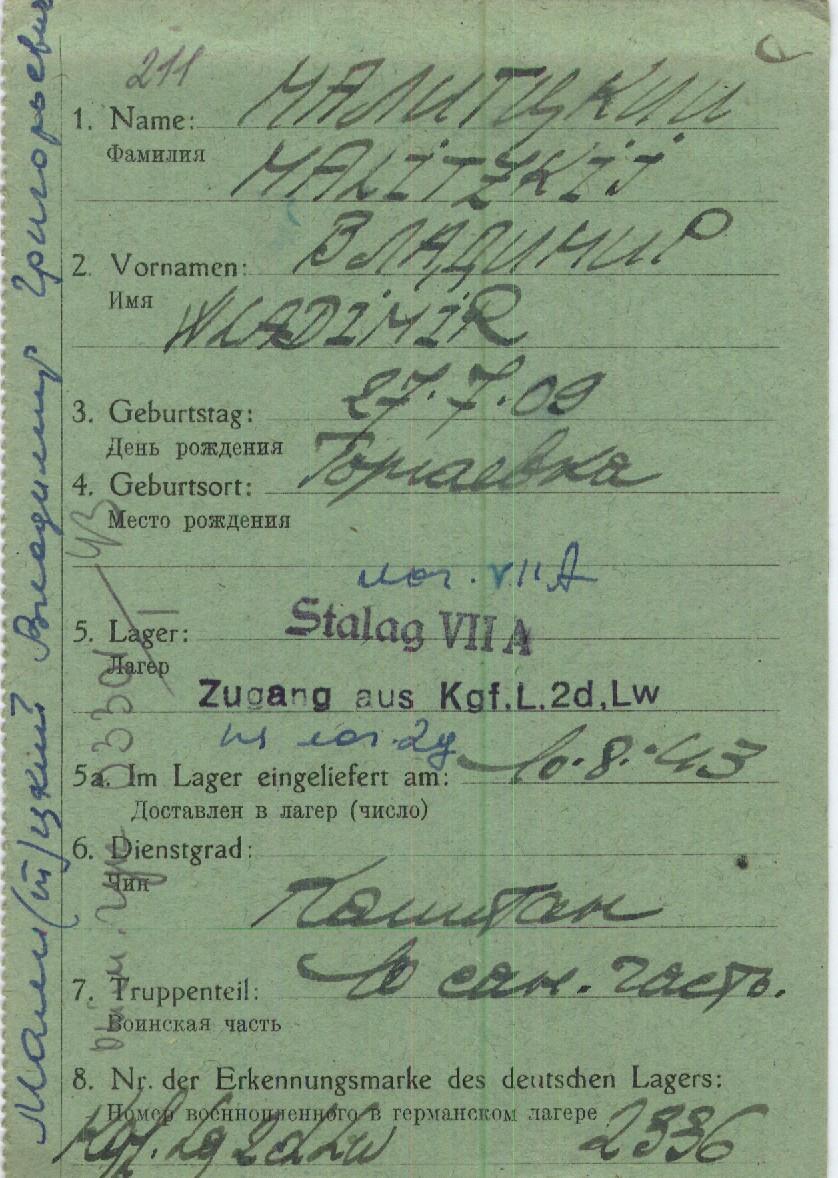 211
МАЛИТЦКИЙ
1. Name:
Фамилия
MALITZKIJ
ВЛАДИМИР
2. Vornamen:
Имя
WLADIMIR
27.7.09
3. Geburtstag:
День рождения
4. Geburtsort:
Место рождения
лаг. VII A
Stalag VII A
5. Lager:
Лагер
Zugang aus Kgf.L.2d,Lw
из лаг. 2д
10.8.43
5a. Im Lager eingeliefert am:
Доставлен в лагер (число)
6. Dienstgrad:
Чин
Капитан
10 сан. часть.
7. Truppenteil:
Воинская часть
8. Nr. der Erkennungsmarke des deutschen Lagers:
Номер военнопленного в германском лагере
Kgf. Lg 2d Lw 2336
Мали(т)цкий Владимир Григорьевич